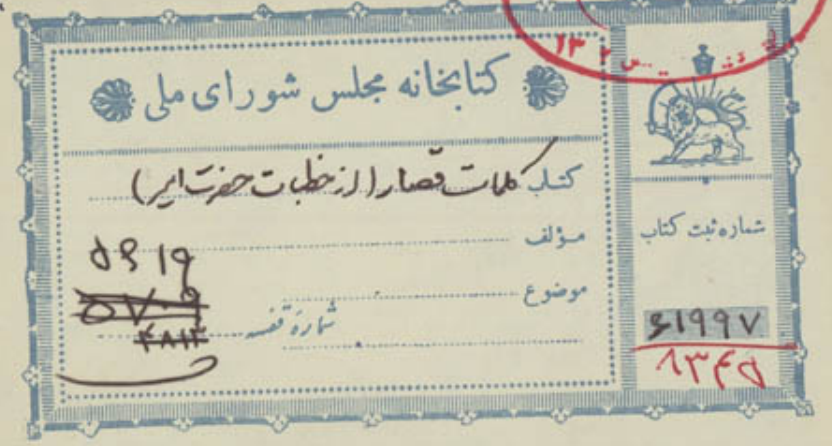 کتابخانه مجلس شورای ملی
کتاب کلمات قصار (از خطبات حضرت امیر)
مؤلف
موضوع
شمارهٔ قفسه
۵۶۱۹
۵۷۰۹
۴۸۱۴
شماره ثبت کتاب
۶۱۹۹۷
۸۳۴۵